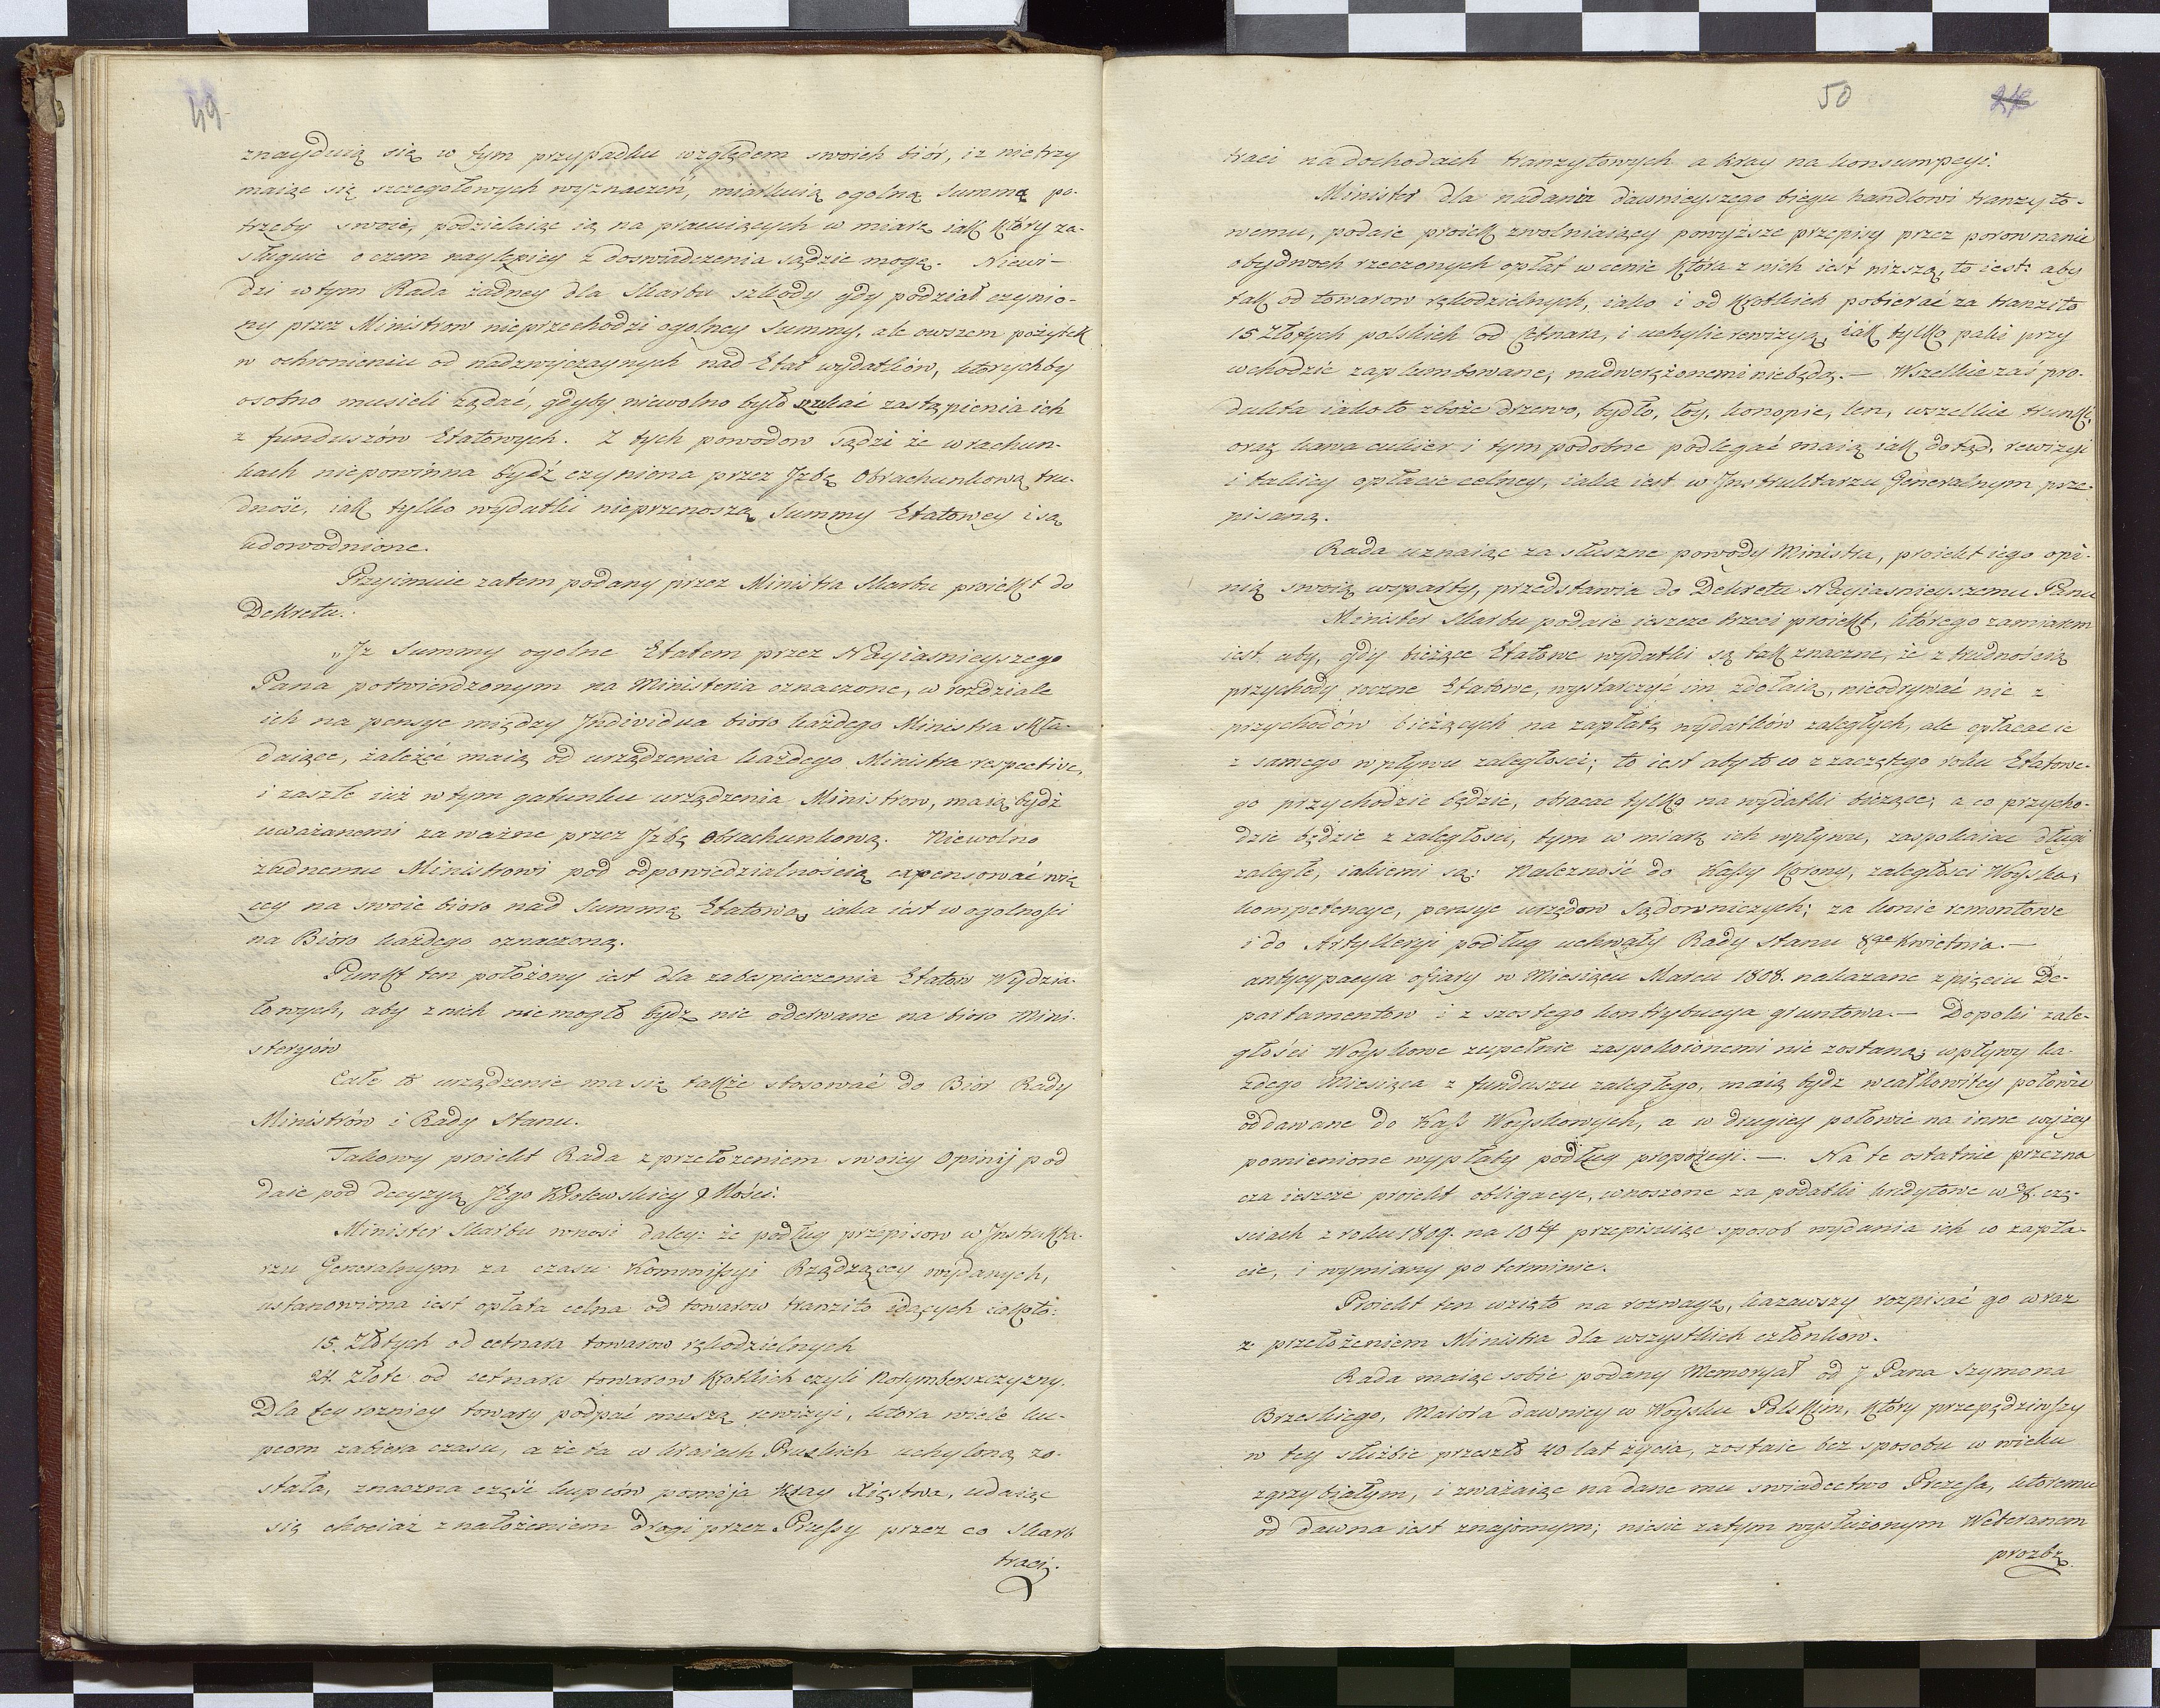 49
znayduią się w tym przypadku względem swoich biór, iż nietrzy
maiąc się szczegołowych wyznaczeń, miarkuią ogolną Summę po-
trzeby swoiey, podzielaiąc ią na pracuiących w miarę iak który za-
sługuie o czem naylepiey z doswiadczenia sądzić mogą. Niewi-
dzi w tym Rada żadney dla Skarbu szkody gdy podział czynio-
ny przez Ministrow nieprzechodzi ogolney Summy, ale owszem pożytek
w ochronieniu od nadzwyczaynych nad Etat wydatków, których by
osobno musieli żądać, gdyby niewolno było szukać zastąpienia ich
z funduszów Etatowych. Z tych powodow sądzi że w rachun-
kach niepowinna bydź czyniona przez Jzbę Obrachunkową tru-
dność, iak tylko wydatki nieprzenoszą Summy Etatowey i są
udowodnione.
Przyimuie zatem podany przez Ministra Skarbu proiekt do
Dekretu.
„Jż Summy ogolne Etatem przez Nayiasnieyszego
Pana potwierdzonym na Ministeria oznaczone, w rozdziale
ich na pensye między Jndividua bioro każdego Ministra skła-
daiące, zależeć maią od urządzenia każdego Ministra respective,
i zaszłe iuż w tym gatunku urządzenia Ministrow, maią bydź
uważanemi za ważne przez Jzbę Obrachunkową. Niewolno
żadnemu Ministrowi pod odpowiedzialnością expensować wię
cey na swoie bioro nad Summę Etatową, iaka iest w ogolności
na Bioro każdego oznaczoną.
Punkt ten położony iest dla zabespieczenia Etatow Wydzia-
łowych, aby z nich niemogło bydz nic oderwane na bioro Mini-
steryów
Całe to urządzenie ma się także stosować do Biór Rady
Ministrów i Rady Stanu.
Takowy proiekt Rada z przełożeniem swoiey Opinij pod
daie pod decyzyą Jego Królewskiey Mości.
Minister Skarbu wnosi daley: że podług przepisow w Jnstrukta-
rzu Generalnym za czasu Kommissyi Rządzącey wydanych,
ustanowiona iest opłata celna od towarow tranzito idących iakoto:
15. Złotych od cetnara towarow rękodzielnych
24. złote od cetnara towarow Krotkich czyli Norymberszczyzny.
Dla tey rożnicy towary podpać muszą rewizyi, która wiele ku-
pcom zabiera czasu, a że ta w kraiach Pruskich uchyloną zo-
stała, znaczna część kupców pomija Kray Xięstwa, udaiąc
się chociaż z nałożeniem drogi przez Prussy przez co Skarb
traci.
50
traci na dochodach tranzytowych a kray na konsumpcyi.
Minister dla nadania dawnieyszego biegu handlowi tranzyto-
wemu, podaie proiekt zwolniaiący powyższe przepisy przez porownanie
obydwoch rzeczonych opłat w cenie która z nich iest niższą, to iest: aby
tak od towarow rękodzielnych, iako i od Krotkich pobierać za tranzito
15 Złotych polskich od Cetnara, i uchylić rewizyą, iak tylko paki przy
wchodzie zaplombowane, nadwerężonemi niebędą.— Wszelkie zaś pro-
dukta iakoto zboże drzewo, bydło, łoy, konopie, len, wszelkie trunki,
oraz kawa cukier i tym podobne podlegać maią iak dotąd, rewizyi
i takiey opłacie celney, iaka iest w Jnstruktarzu Generalnym prze-
pisaną.
Rada uznaiąc za słuszne powody Ministra, proiekt iego opi-
nią swoią wsparty, przedstawia do Dekretu Nayiasnieyszemu Panu
Minister Skarbu podaie ieszcze trzeci proiekt, którego zamiarem
iest aby, gdy bieżące Etatowe wydatki są tak znaczne, że z trudnością
przychody roczne Etatowe, wystarczyć im zdołaią, nieodrywać nic z
przychodów bieżących na zapłatę wydatków zaległych, ale opłacac ie
z samego wpływu zaległości; to iest aby to co z zaczętego roku Etatowe-
go przychodzie będzie, obracac tylko na wydatki bieżące; a co przycho-
dzie będzie z zaległości, tym w miarę ich wpływu, zaspokaiac długi
zaległe, iakiemi są: Należność do Kassy Korony, zaległości Woyska,
kompetencye, pensye urzędow Sądowniczych; za konie remontowe
i do Artylleryi podług uchwały Rady Stanu 8go Kwietnia.—
antycypacya ofiary w Miesiącu Marcu 1808. nakazane z pięciu De-
partamentow i z szostego kontrybucya gruntowa.— Dopoki zale-
głości Woyskowe zupełnie zaspokoionemi nie zostaną, wpływy ka-
żdego Miesiąca z funduszu zaległego, maią bydz w całkowitey połowie
oddawane do Kass Woyskowych, a w drugiey połowie na inne wyżey
pomienione wypłaty podług propozycyi.—. Na te ostatnie przezna
cza ieszcze proiekt obligacye, wnoszone za podatki kredytowe w 3/8. czę-
sciach z roku 1809. na 10ty przepisuiąc sposob wydania ich w zapła-
cie, i wymiany po terminie.
Proiekt ten wzięto na rozwagę, kazawszy rozpisać go wraz
z przełożeniem Ministra dla wszystkich członkow.
Rada maiąc sobie podany Memoryał od J Pana Szymona
Brzeskiego, Maiora dawniey w Woysku Polskim, który przepędziwszy
w tey służbie przeszło 40 lat życia, zostaie bez sposobu w wieku
zgrzybiałym, i zważaiąc na dane mu swiadectwo Prezesa, któremu
od dawna iest znajomym; niesie zatym wysłużonym Weteranem
prozbę